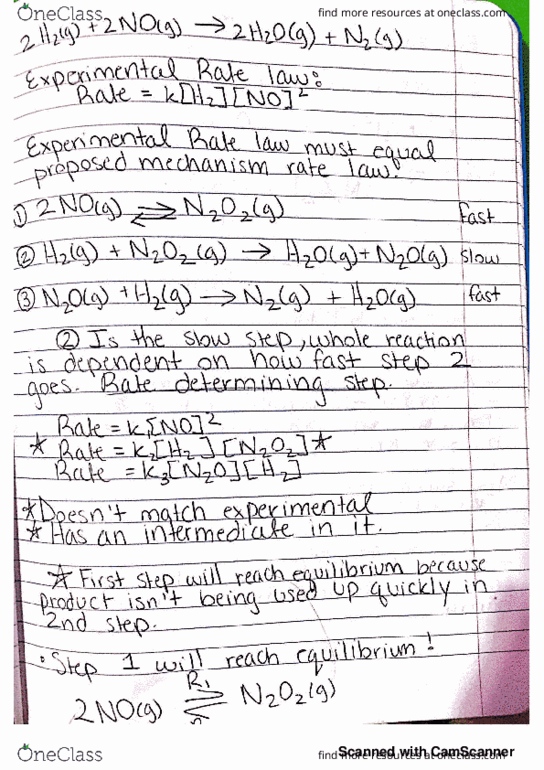 OneClass find more resources at oneclass.com
2H₂(g) + 2NO(g) → 2H₂O(g) + N₂(g)
Experimental Rate law:
Rate = k[H₂][NO]²
Experimental Rate law must equal
proposed mechanism rate law!
① 2NO(g) ⇌ N₂O₂(g) fast
② H₂(g) + N₂O₂(g) → H₂O(g) + N₂O(g) slow
③ N₂O(g) + H₂(g) → N₂(g) + H₂O(g) fast
② Is the slow step, whole reaction
is dependent on how fast step 2
goes. Rate determining step.
Rate = k₁[NO]²
* Rate = k₂[H₂][N₂O₂]*
Rate = k₃[N₂O][H₂]
*Doesn't match experimental
* Has an intermediate in it.
* First step will reach equilibrium because
product isn't being used up quickly in
2nd step.
· Step 1 will reach equilibrium!
R₁
2NO(g) ⇌ N₂O₂(g)
OneClass find more resources at oneclass.com
Scanned with CamScanner